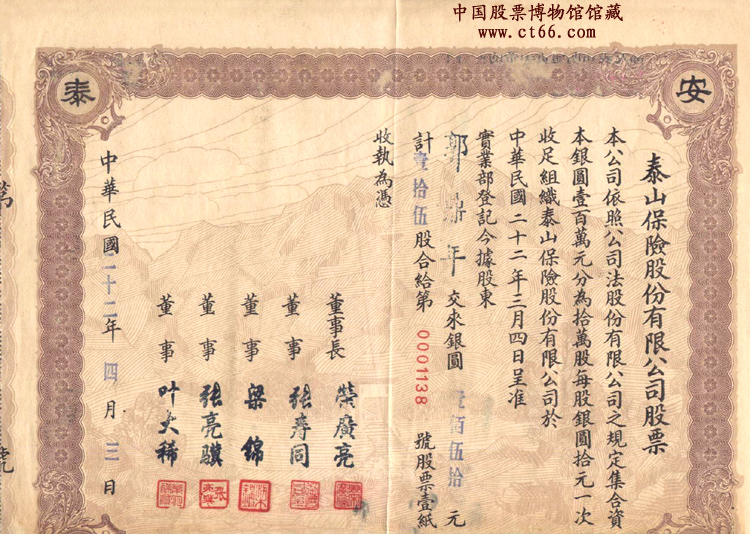 中国股票博物馆馆藏
www.ct66.com
安
泰
泰山保險股份有限公司股票
本公司依照公司法股份有限公司之規定集合資
本銀圓壹百萬元分為拾萬股每股銀圓拾元一次
收足組織泰山保險股份有限公司於
中華民國二十二年三月四日呈准
實業部登記今據股東
郭鼎年交來銀圓壹佰伍拾元
計壹拾伍股合給第0001138號股票壹紙
收執為憑
董事長
董事
董事
董事
董事
榮廣亮
張壽同
梁錦
張亮驥
叶大稀
中華民國二十二年四月三日